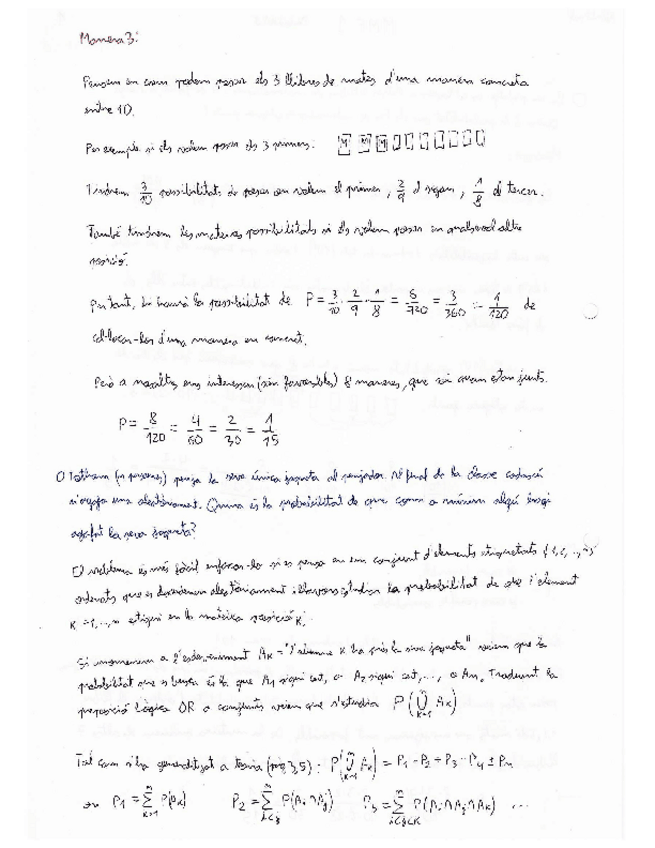 Manera 3:
Pensem en com podem posar els 3 llibres de mates d'una manera concreta
entre 10.
Per exemple si els volem posar els 3 primers: M M M
Tindrem 3/10 possibilitats de posar on volem el primer, 2/9 el segon, 1/8 el tercer.
També tindrem les mateixes possibilitats si els volem posar en qualsevol altre
posició.
Per tant, hi haurà la possibilitat de P = 3/10 · 2/9 · 1/8 = 6/720 = 3/360 = 1/120 de
col·locar-los d'una manera en concret.
Però a nosaltres ens interessen (són favorables) 8 maneres, que són quan estan junts.
P = 8/120 = 4/60 = 2/30 = 1/15
Tothom (n persones) penja la seva única jaqueta al penjador. Al final de la classe cadascú
n'agafa una aleatòriament. Quina és la probabilitat de que com a mínim algú hagi
agafat la seva jaqueta?
El problema és més fàcil enfocar-lo si es pensa en un conjunt d'elements etiquetats
ordenats que es desordenen aleatòriament i llavors estudiar la probabilitat de que l'element
K = 1, ..., n estigui en la mateixa posició K.
Si anomenem a l'esdeveniment Ak = "l'alumne K ha pres la seva jaqueta" veiem que la
probabilitat que es busca és la que A1 sigui cert, o A2 sigui cert, ..., o An. Traduint la
proposició lògica OR a conjunts veiem que s'estudia P(⋃ₖ₌₁ⁿ Ak)
Tal com s'ha generalitzat a teoria (pàg 3,5): P(⋃ₖ₌₁ⁿ Ak) = P1 - P2 + P3 - P4 ± Pn
on P1 = ∑ₖ₌₁ⁿ P(Ak) P2 = ∑ⁿ i<j P(Ai ∩ Aj) P3 = ∑ⁿ i<j<k P(Ai ∩ Aj ∩ Ak) ...